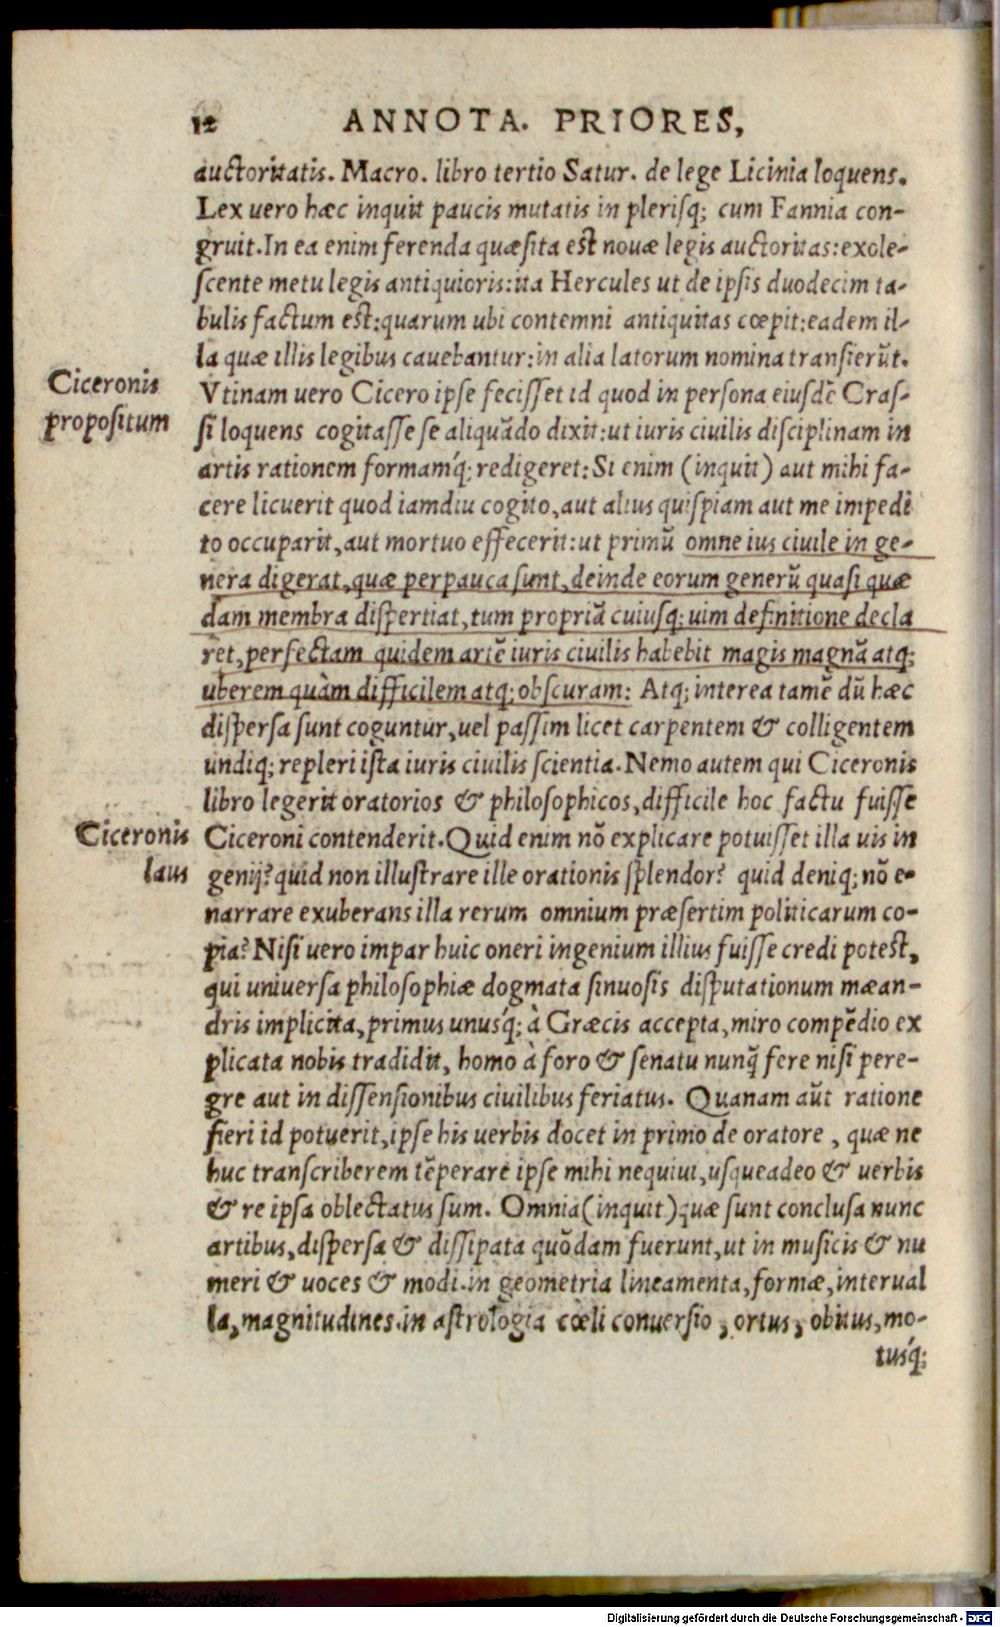 12 ANNOTA. PRIORES,
auctoritatis. Macro. libro tertio Satur. de lege Licinia loquens.
Lex uero hæc inquit paucis mutatis in plerisq; cum Fannia con-
gruit. In ea enim ferenda quæsita est nouæ legis auctoritas: exole-
scente metu legis antiquioris: ita Hercules ut de ipsis duodecim ta-
bulis factum est: quarum ubi contemni antiquitas cœpit: eadem il-
la quæ illis legibus cauebantur: in alia latorum nomina transierūt.
Ciceronis
propositum
Vtinam uero Cicero ipse fecisset id quod in persona eiusdē Cras-
si loquens cogitasse se aliquādo dixit: ut iuris ciuilis disciplinam in
artis rationem formamq́; redigeret: Si enim (inquit) aut mihi fa-
cere licuerit quod iamdiu cogito, aut alius quispiam aut me impedi
to occuparit, aut mortuo effecerit: ut primū omne ius ciuile in ge-
nera digerat, quæ perpauca sunt, deinde eorum generū quasi quæ
dam membra dispertiat, tum propriā cuiusq; uim definitione decla
ret, perfectam quidem artē iuris ciuilis habebit magis magnā atq;
uberem quàm difficilem atq; obscuram: Atq; interea tamē dū hæc
dispersa sunt coguntur, uel passim licet carpentem & colligentem
undiq; repleri ista iuris ciuilis scientia. Nemo autem qui Ciceronis
libro legerit oratorios & philosophicos, difficile hoc factu fuisse
Ciceronis
laus
Ciceroni contenderit. Quid enim nō explicare potuisset illa uis in
genij? quid non illustrare ille orationis splendor? quid deniq; nō e-
narrare exuberans illa rerum omnium præsertim politicarum co-
pia? Nisi uero impar huic oneri ingenium illius fuisse credi potest,
qui uniuersa philosophiæ dogmata sinuosis disputationum mæan-
dris implicita, primus unusq́; à Græcis accepta, miro compēdio ex
plicata nobis tradidit, homo à foro & senatu nunq̄ fere nisi pere-
gre aut in dissensionibus ciuilibus feriatus. Quanam aūt ratione
fieri id potuerit, ipse his uerbis docet in primo de oratore, quæ ne
huc transcriberem tēperare ipse mihi nequiui, usqueadeo & uerbis
& re ipsa oblectatus sum. Omnia (inquit) quæ sunt conclusa nunc
artibus, dispersa & dissipata quōdam fuerunt, ut in musicis & nu
meri & uoces & modi. in geometria lineamenta, formæ, interual
la, magnitudines. in astrologia cœli conuersio, ortus, obitus, mo-
tusq́;
Digitalisierung gefördert durch die Deutsche Forschungsgemeinschaft - DFG